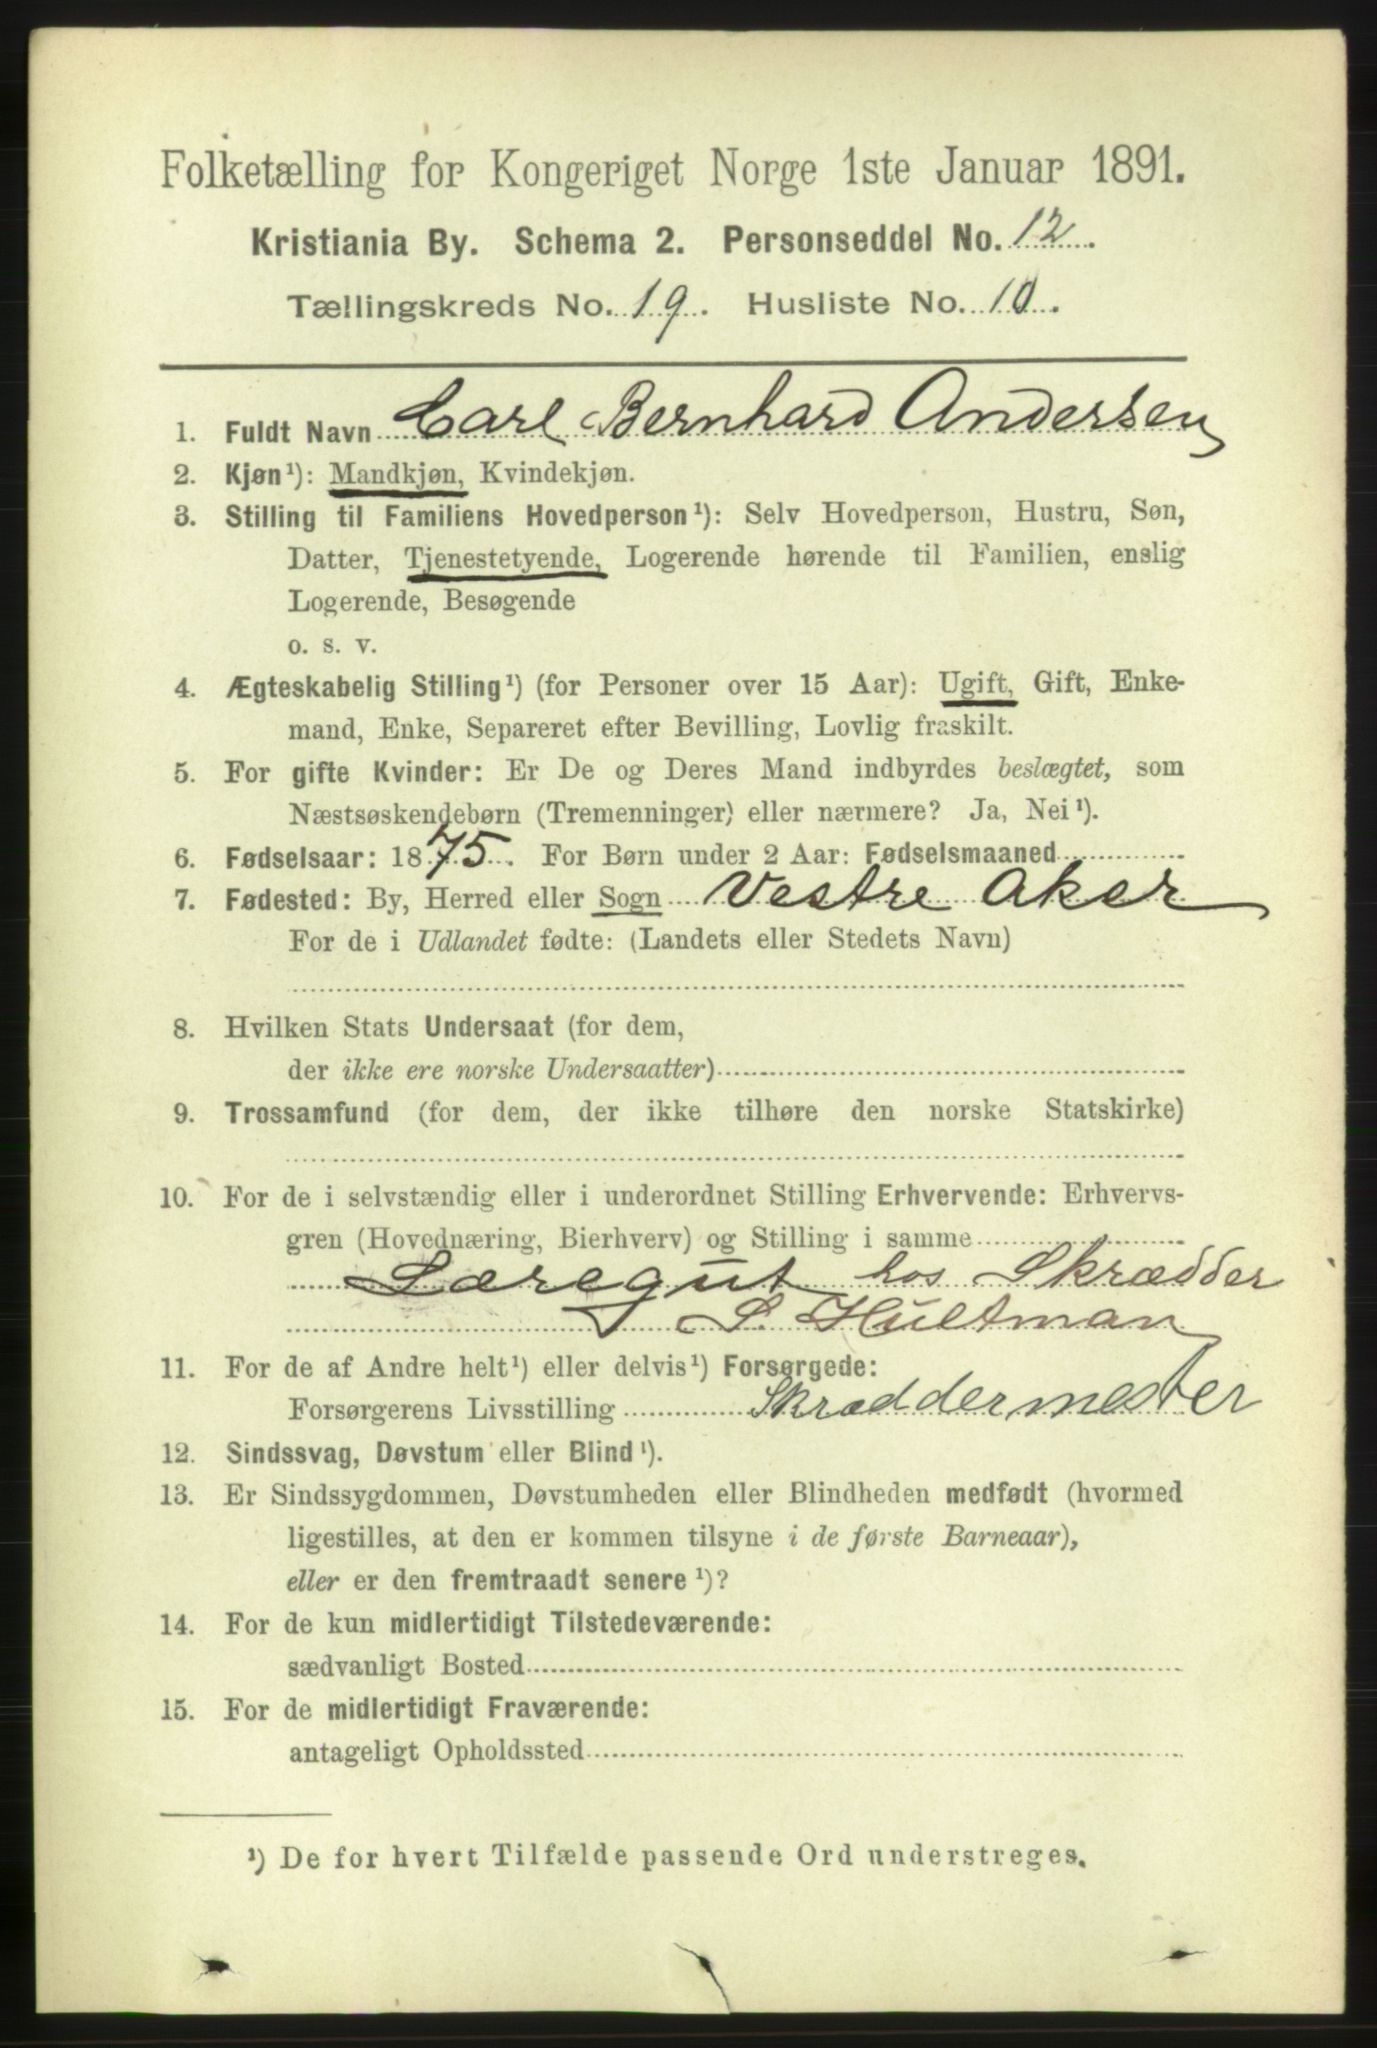 Folketælling for Kongeriget Norge 1ste Januar 1891.
Kristiania By. Schema 2. Personseddel No. 12.
Tællingskreds No. 19. Husliste No. 10.
1. Fuldt Navn Carl Bernhard Andersen
2. Kjøn¹): Mandkjøn, Kvindekjøn.
3. Stilling til Familiens Hovedperson¹): Selv Hovedperson, Hustru, Søn,
Datter, Tjenestetyende, Logerende hørende til Familien, enslig
Logerende, Besøgende
o. s. v.
4. Ægteskabelig Stilling¹) (for Personer over 15 Aar): Ugift, Gift, Enke-
mand, Enke, Separeret efter Bevilling, Lovlig fraskilt.
5. For gifte Kvinder: Er De og Deres Mand indbyrdes beslægtet, som
Næstsøskendebørn (Tremenninger) eller nærmere? Ja, Nei¹).
6. Fødselsaar: 1875. For Børn under 2 Aar: Fødselsmaaned
7. Fødested: By, Herred eller Sogn Vestre Aker
For de i Udlandet fødte: (Landets eller Stedets Navn)
8. Hvilken Stats Undersaat (for dem,
der ikke ere norske Undersaatter)
9. Trossamfund (for dem, der ikke tilhøre den norske Statskirke)
10. For de i selvstændig eller i underordnet Stilling Erhvervende: Erhvervs-
gren (Hovednæring, Bierhverv) og Stilling i samme
Læregut hos Skrædder
S. Hultman
11. For de af Andre helt¹) eller delvis¹) Forsørgede:
Forsørgerens Livsstilling Skræddermester
12. Sindssvag, Døvstum eller Blind¹).
13. Er Sindssygdommen, Døvstumheden eller Blindheden medfødt (hvormed
ligestilles, at den er kommen tilsyne i de første Barneaar),
eller er den fremtraadt senere¹)?
14. For de kun midlertidigt Tilstedeværende:
sædvanligt Bosted
15. For de midlertidigt Fraværende:
antageligt Opholdssted
¹) De for hvert Tilfælde passende Ord understreges.